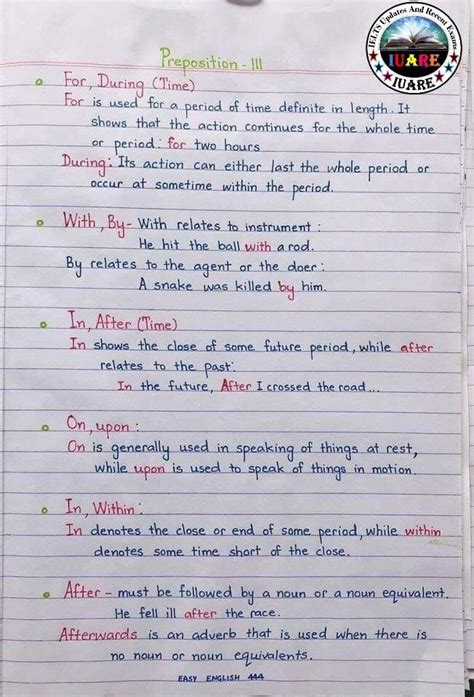 IELTS Updates And Recent Exams
IUARE
IUARE
Preposition - III
For, During (Time)
For is used for a period of time definite in length. It
shows that the action continues for the whole time
or period: for two hours
During: Its action can either last the whole period or
occur at sometime within the period.
With, By- With relates to instrument :
He hit the ball with a rod.
By relates to the agent or the doer:
A snake was killed by him.
In, After (Time)
In shows the close of some future period, while after
relates to the past:
In the future, After I crossed the road...
On, upon :
On is generally used in speaking of things at rest,
while upon is used to speak of things in motion.
In, Within:
In denotes the close or end of some period, while within
denotes some time short of the close.
After - must be followed by a noun or a noun equivalent.
He fell ill after the race.
Afterwards is an adverb that is used when there is
no noun or noun equivalents.
EASY ENGLISH 444